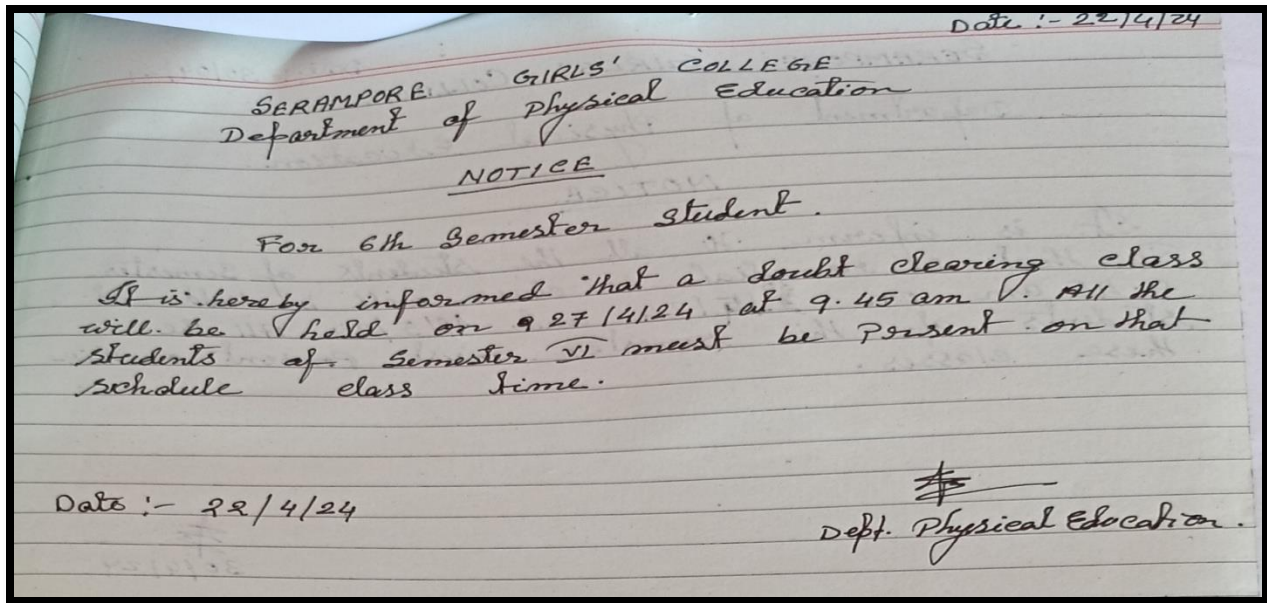 Date :- 22/4/24
SERAMPORE GIRLS' COLLEGE
Department of Physical Education
NOTICE
For 6th Semester Student.
It is hereby informed that a doubt clearing class
will be held on 27/4/24 at 9.45 am. All the
students of Semester VI must be Present on that
schdule class time.
Date :- 22/4/24
Dept. Physical Edocation.